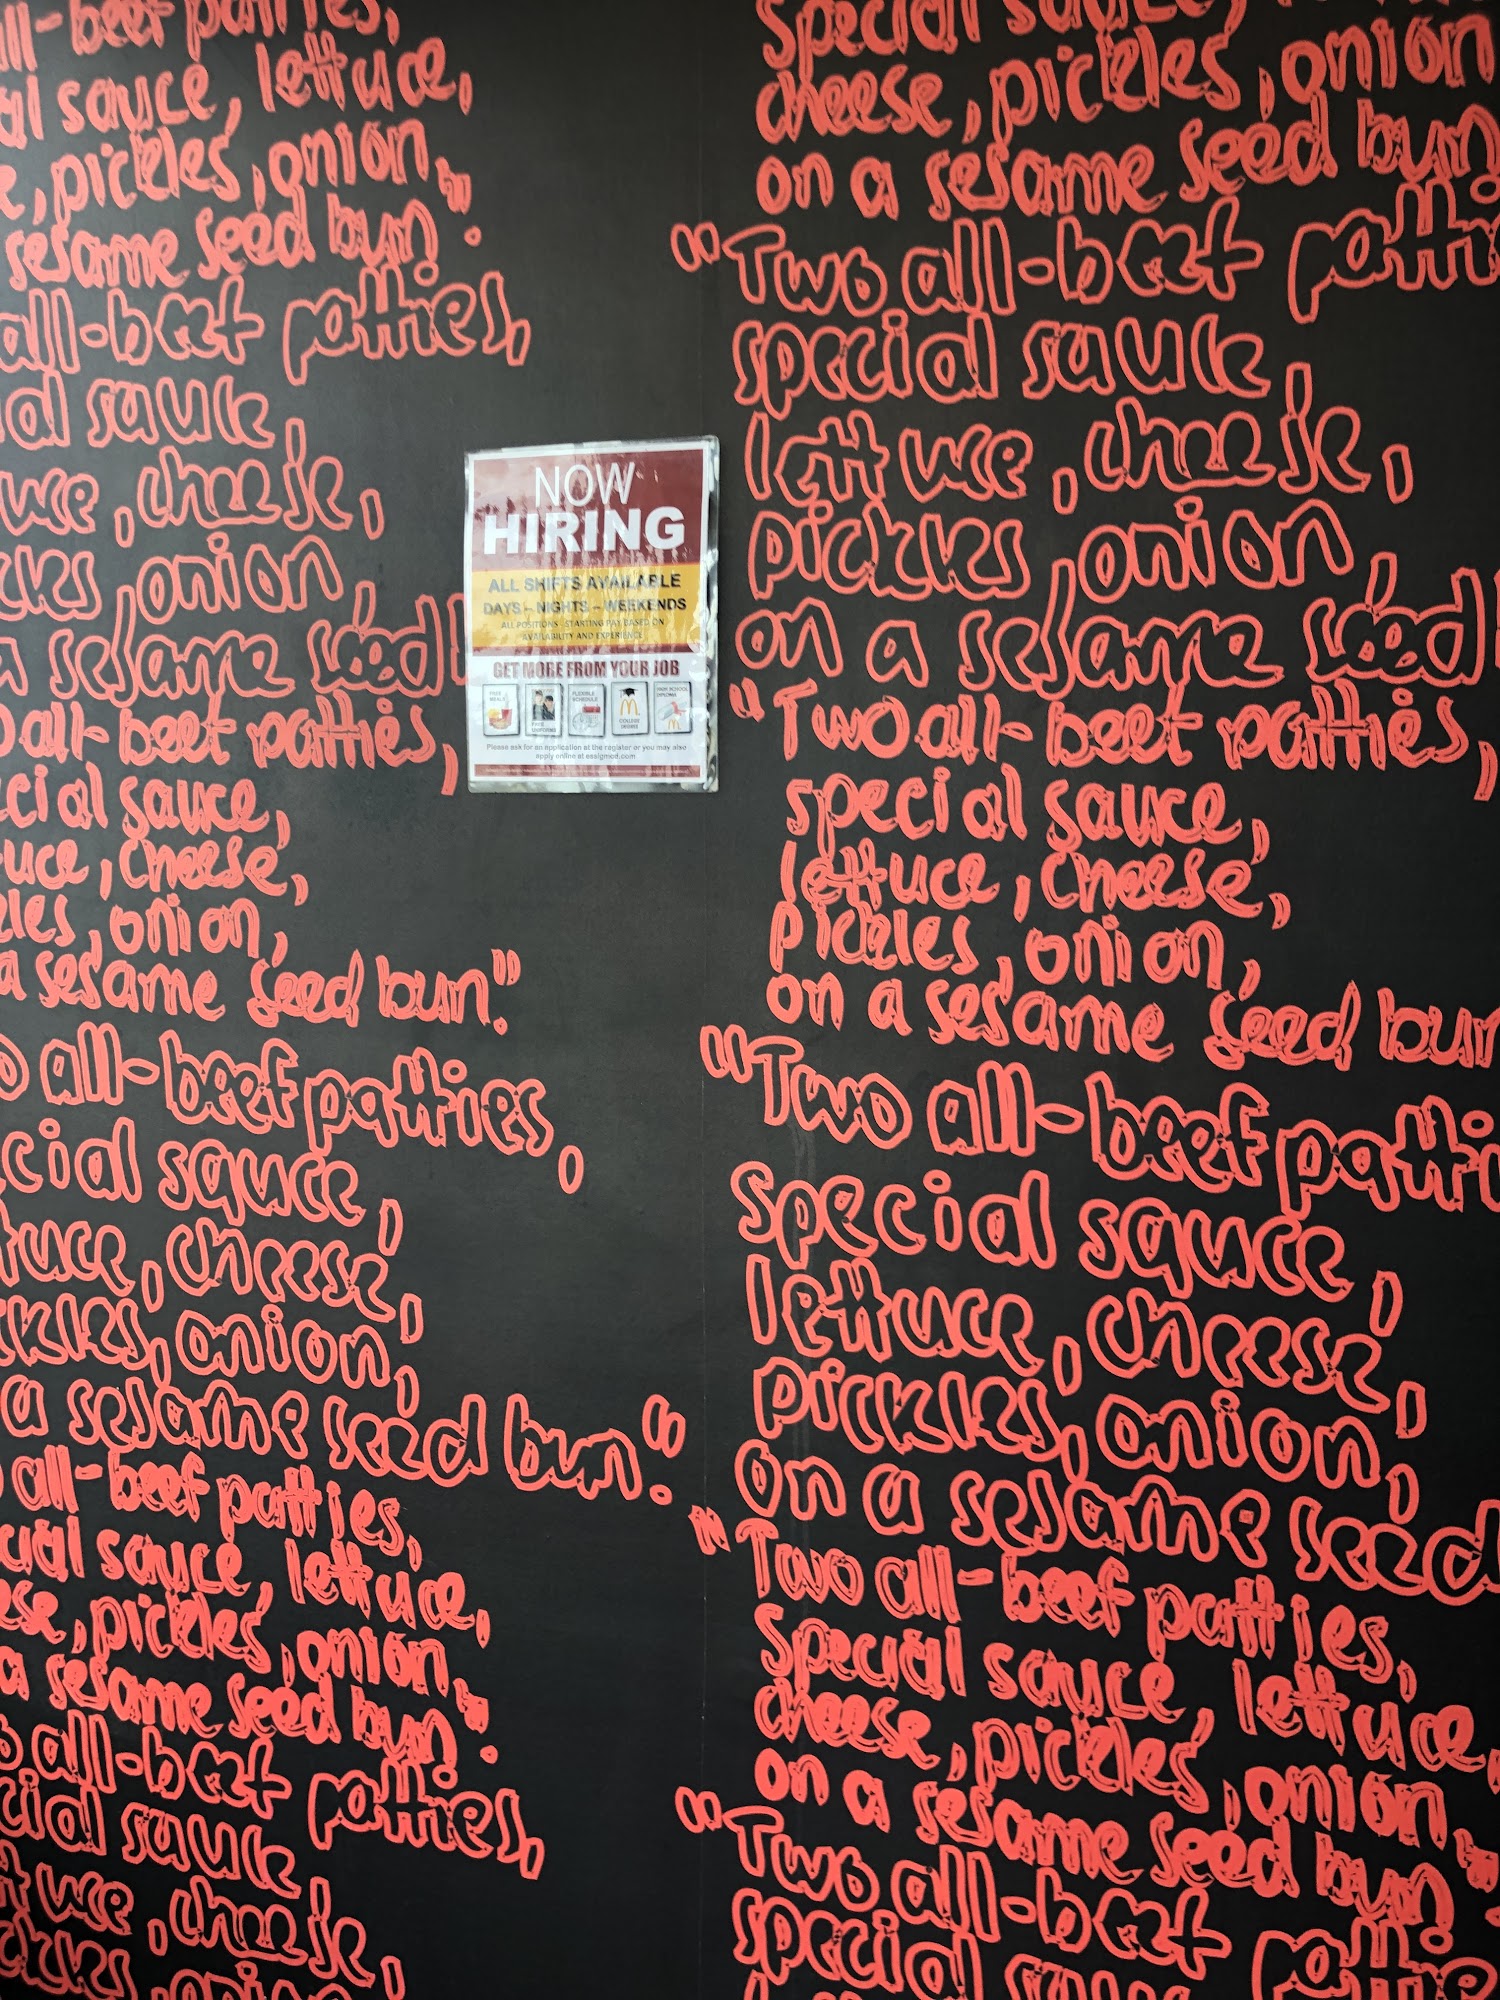 all-beef patties,
sauce, lettuce,
, pickles, onion,
sesame seed bun".
all-beef patties,
sauce
, cheese,
, onion,
a sesame seed
all-beet patties,
sauce,
, cheese,
, onion,
a sesame seed bun."
all-beef patties,
sauce,
, cheese,
, onion,
a sesame seed bun."
all-beef patties,
sauce, lettuce,
, pickles, onion,
a sesame seed bun".
all-beef patties,
sauce
, cheese,
NOW
HIRING
ALL SHIFTS AVAILABLE
DAYS - NIGHTS - WEEKENDS
ALL POSITIONS - STARTING PAY BASED ON
AVAILABILITY AND EXPERIENCE
GET MORE FROM YOUR JOB
FREE
MEALS
FREE
UNIFORMS
FLEXIBLE
SCHEDULE
COLLEGE
DEGREE
HIGH SCHOOL
DIPLOMA
Please ask for an application at the register or you may also
apply online at
special sauce,
cheese, pickles, onion
on a sesame seed bun
"Two all-beef
special sauce,
lettuce, cheese,
pickles, onion,
on a sesame seed
"Two all-beet patties,
special sauce,
lettuce, cheese,
pickles, onion,
on a sesame seed bun
"Two all-beef
special sauce,
lettuce, cheese,
pickles, onion,
on a sesame seed
"Two all-beef patties,
special sauce, lettuce,
cheese, pickles, onion,
on a sesame seed bun".
"Two all-beef
special